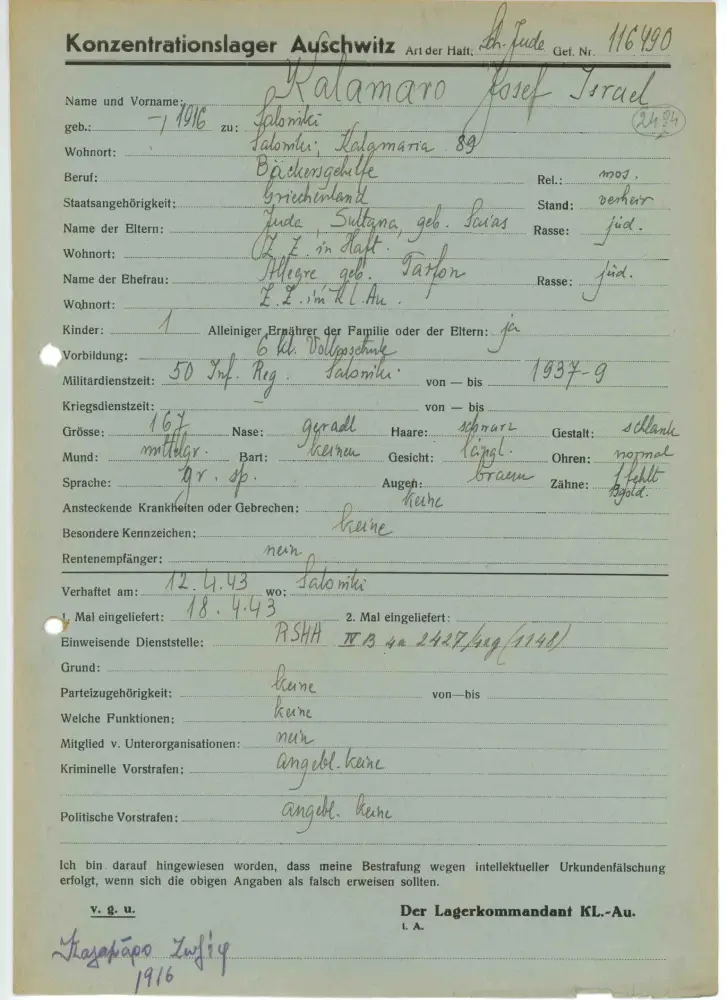 Konzentrationslager Auschwitz Art der Haft: Sch. Jude Gef. Nr. 116490
Name und Vorname: Kalamaro Josef Israel
geb.: -, 1916 zu: Saloniki
Wohnort: Saloniki, Kalamaria 89
Beruf: Bäckersgehilfe Rel.: mos.
Staatsangehörigkeit: Griechenland Stand: verheir
Name der Eltern: Juda, Sultana, geb. Saias Rasse: jüd.
Wohnort: Z. Z. in Haft.
Name der Ehefrau: Allegre geb. Tarfon Rasse: jüd.
Wohnort: Z. Z. im Kl. Au.
Kinder: 1 Alleiniger Ernährer der Familie oder der Eltern: ja
Vorbildung: 6 kl. Volksschule
Militärdienstzeit: 50 Inf. Reg. Saloniki. von — bis 1937-9
Kriegsdienstzeit: - von — bis
Grösse: 167 Nase: geradl Haare: schwarz Gestalt: schlank
Mund: mittelgr. Bart: keinen Gesicht: längl. Ohren: normal
Sprache: gr. sp. Augen: braun Zähne: 1 fehlt
Ansteckende Krankheiten oder Gebrechen: keine
Besondere Kennzeichen: keine
Rentenempfänger: nein
Verhaftet am: 12.4.43 wo: Saloniki
1. Mal eingeliefert: 18.4.43 2. Mal eingeliefert:
Einweisende Dienststelle: RSHA IV B 4a 2427/42g (1148)
Grund:
Parteizugehörigkeit: keine von—bis
Welche Funktionen: keine
Mitglied v. Unterorganisationen: nein
Kriminelle Vorstrafen: angebl. keine
Politische Vorstrafen: angebl. keine
Ich bin darauf hingewiesen worden, dass meine Bestrafung wegen intellektueller Urkundenfälschung
erfolgt, wenn sich die obigen Angaben als falsch erweisen sollten.
v. g. u. Der Lagerkommandant KL.-Au.
I. A.
1916